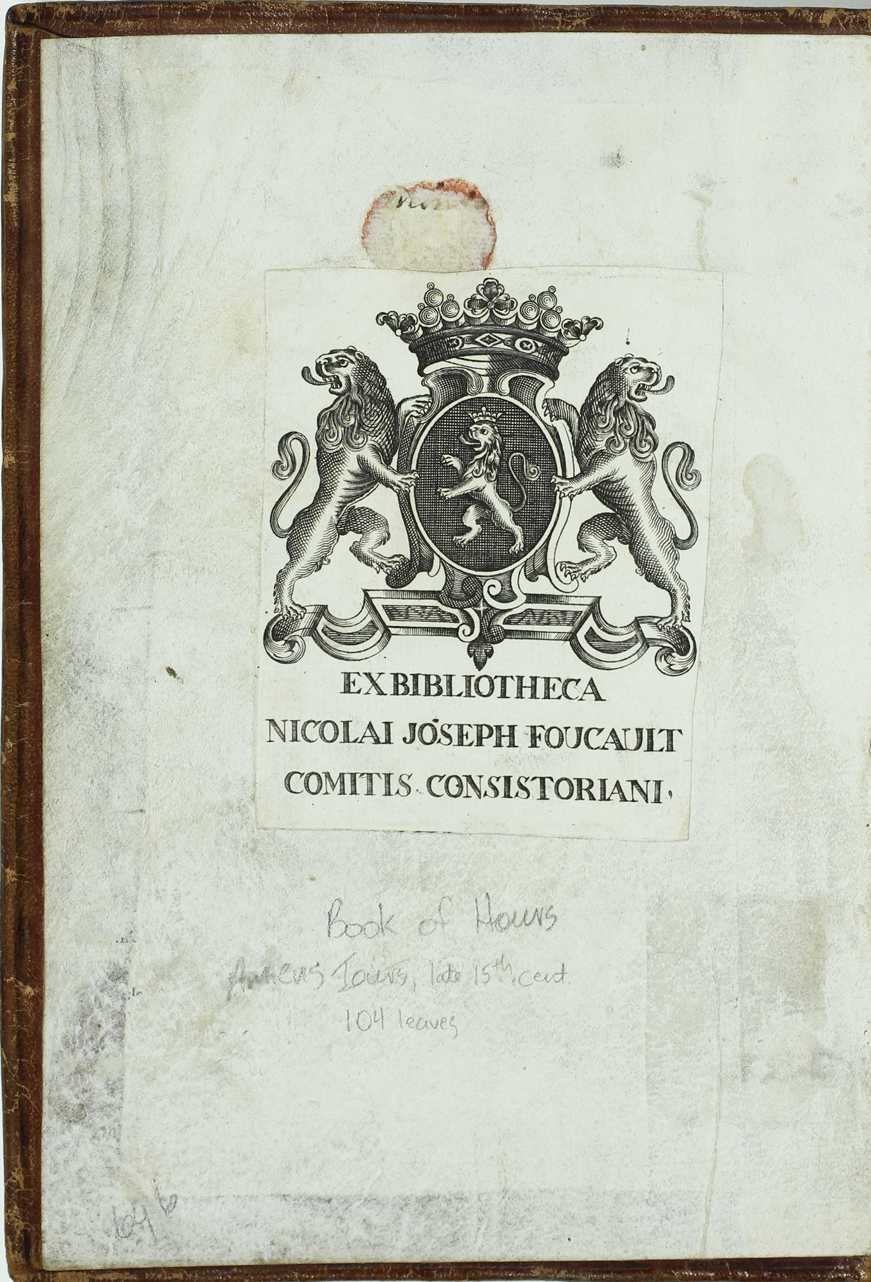 EX BIBLIOTHECA
NICOLAI JOSEPH FOUCAULT
COMITIS CONSISTORIANI.
Book of Hours
Tours, late 15th cent.
104 leaves